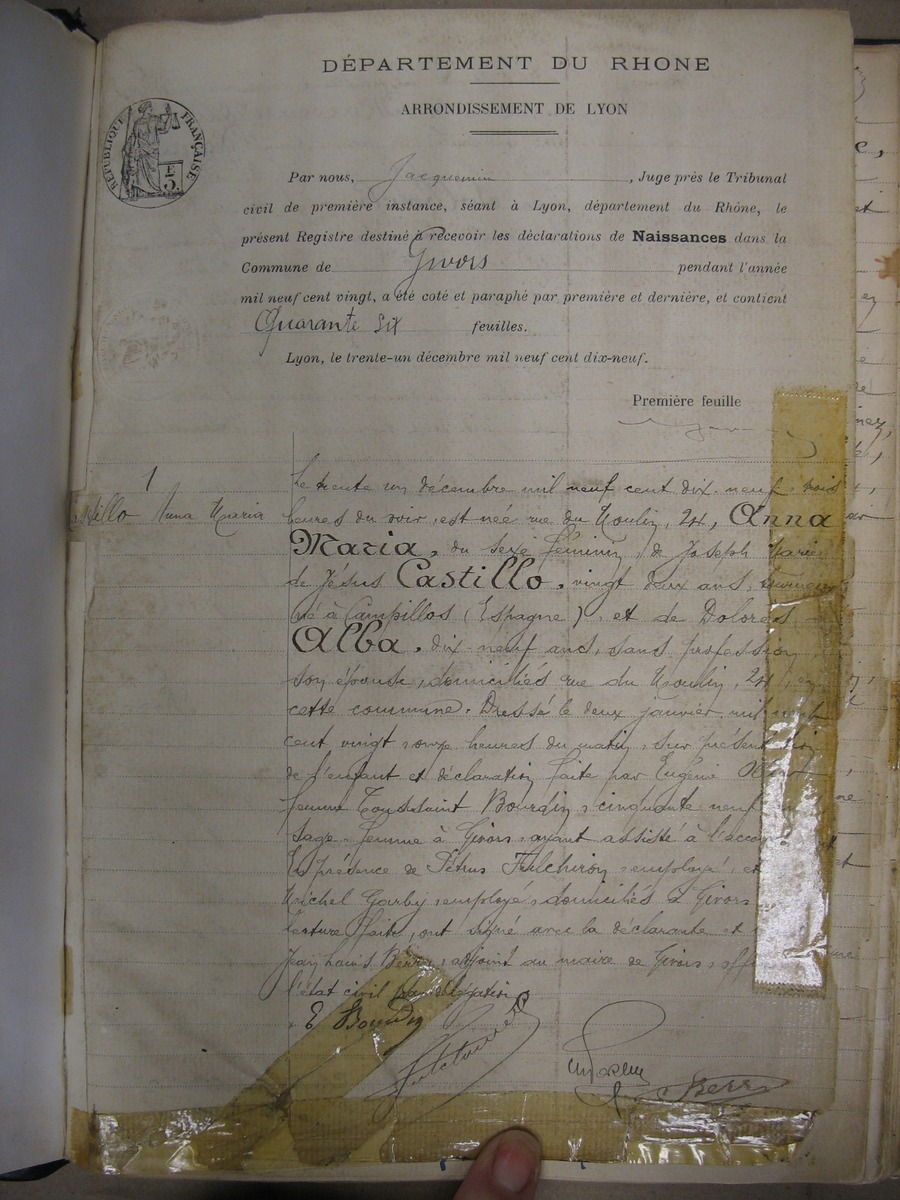 DÉPARTEMENT DU RHONE
ARRONDISSEMENT DE LYON
RÉPUBLIQUE FRANÇAISE
Par nous, Jacquemin, Juge près le Tribunal
civil de première instance, séant à Lyon, département du Rhône, le
présent Registre destiné à recevoir les déclarations de Naissances dans la
Commune de Givors pendant l'année
mil neuf cent vingt, a été coté et paraphé par première et dernière, et contient
Quarante six feuilles.
Lyon, le trente-un décembre mil neuf cent dix-neuf.
Première feuille
1
Castillo Anna Maria
Le trente un décembre mil neuf cent dix-neuf, trois
heures du soir, est née rue du Moulin, 24, Anna
Maria, du sexe féminin, de Joseph Marie
de Jésus Castillo, vingt deux ans,
né à Campillos (Espagne), et de Dolorès
Alba, dix-neuf ans, sans profession,
son épouse, domiciliés rue du Moulin, 24, en
cette commune. Dressé le deux janvier mil neuf
cent vingt, onze heures du matin, sur présentation
de l'enfant et déclaration faite par Eugénie
femme Toussaint Bourdin, cinquante neuf
sage-femme à Givors, ayant assisté à l'accou
En présence de Pétrus Fulchiron, employé, et
Michel Garby, employé, domiciliés à Givors
lecture faite, ont signé avec la déclarante et
Jean Louis Berry, adjoint au maire de Givors, offi
l'état civil par délégation.
E Bourdin
Fulchiron
Berry